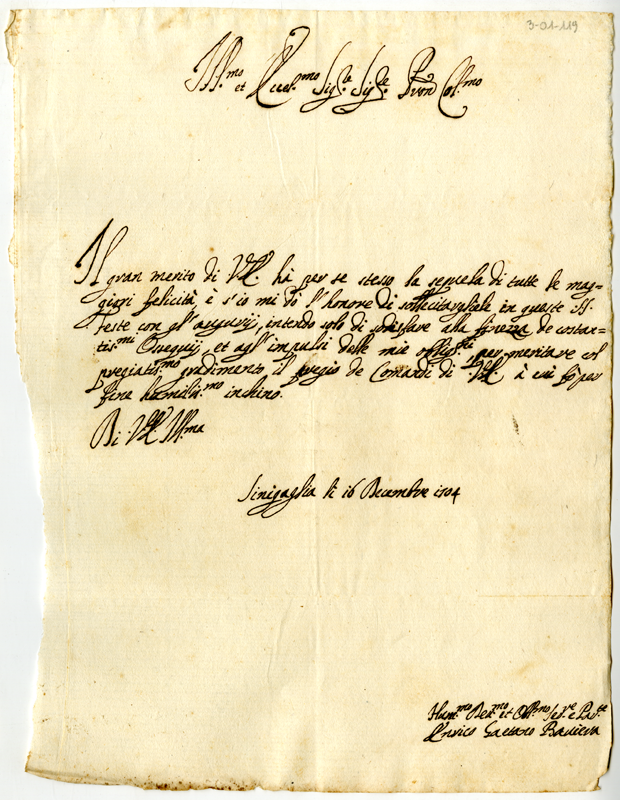 3-01-119
Ill.mo et Ecce.mo Sig.re Sig.re Pron Col.mo
Il gran merito di V.E. hà per se stesso la sequela di tutte le mag-
giori felicità è s'io mi dò l'honore di sollecitargliele in queste SS.
feste con gl'augurij, intendo solo di sodisfare alla finezza de costan-
tis.mi Ossequij, et agl'impulsi delle mie obblig.ni, per meritare col
pregiatis.mo gradimento il pregio de Comandi di V.E. à cui fò per
fine humilis.mo inchino.
Di V.E. Ill.ma
Sinigaglia li 16 Decembre 1704
Hum.mo Dev.mo et Obb.mo Ser.re
Enrico Gaetano